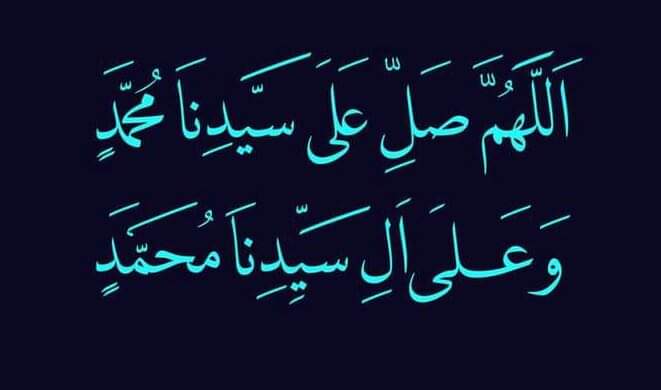 اَللَّهُمَّ صَلِّ عَلَى سَيِّدِنَا مُحَمَّدٍ
وَعَلَى اَلِ سَيِّدِنَا مُحَمَّدٍ